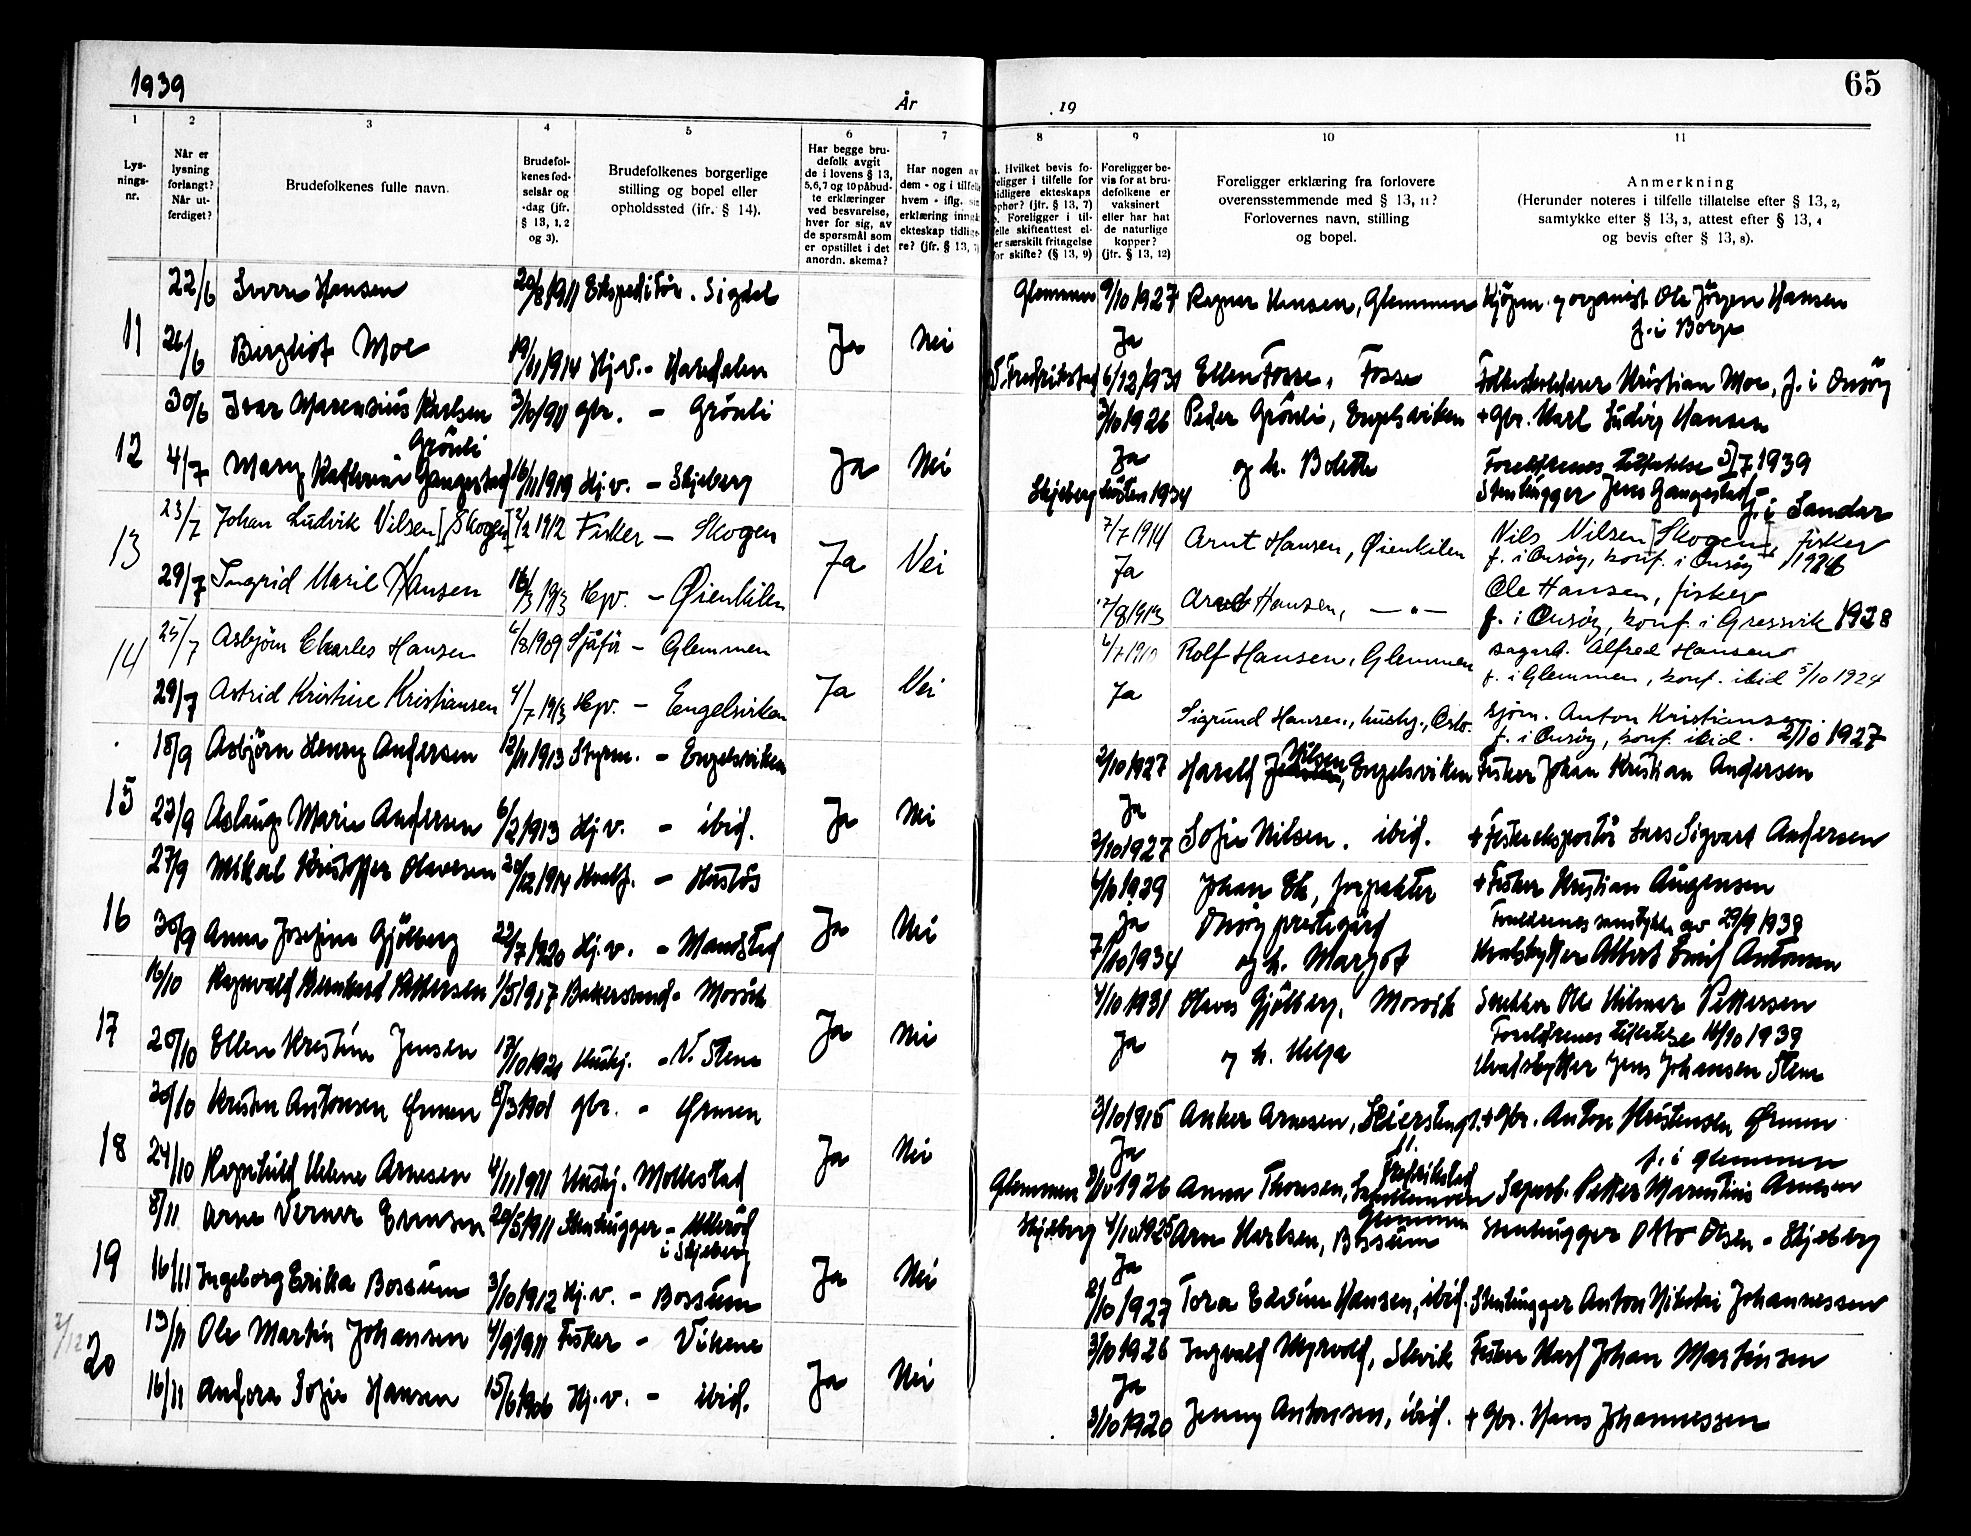 1939
År
19
65
1
2
3
4
5
6
7
8
9
10
11
Lys-
nings-
nr.
Når er
lysning
forlangt?
Når ut-
ferdiget?
Brudefolkenes fulle navn.
Brudefol-
kenes fød-
selsår og
-dag (jfr.
§ 13, 1, 2
og 3).
Brudefolkenes borgerlige
stilling og bopel eller
opholdssted (ifr. § 14).
Har begge bru-
defolk avgit
de i lovens § 13,
5, 6, 7 og 10 påbud-
te erklæringer
ved besvarelse,
hver for sig, av
de spørsmål som
er opstillet i det
anordn. skema?
Har nogen av
dem - og i tilfelle
hvem - iflg. sin
erklæring inngå
ekteskap tidlige-
re? (jfr. § 13, 7)
Hvilket bevis fo-
religger i tilfelle for
tidligere ekteskaps
ophør? (jfr. § 13, 7)
Foreligger i til-
felle skifteattest el-
er særskilt fritagelse
for skifte? (§ 13, 9)
Foreligger be-
vis for at bru-
defolkene er
vaksinert
eller har hat
de naturlige
kopper?
(jfr. § 13, 12)
Foreligger erklæring fra forlovere
overensstemmende med § 13, 11?
Forlovernes navn, stilling
og bopel.
Anmerkning
(Herunder noteres i tilfelle tillatelse efter § 13, 2,
samtykke efter § 13, 3, attest efter § 13, 4
og bevis efter § 13, 8).
22/6 Sverre Hansen 20/8 1911 Ekspeditør. Sigdal Glemmen 9/10 1927 Ragnar Hansen, Glemmen Kjøpm. og organist Ole Jörgen Hansen
f. i Borge
11 26/6 Bergliot Moe 19/11 1914 Hj.v. - Ja Nei Ja
6/12 1931 Ellen Fosse, Fosse Kristian Moe, f. i Onsøy
30/6 Ivar Marensius Karlsen 3/10 1911 gbr. - Grönli 3/10 1926 Peder Grönli, Engelsviken + Gbr. Karl Ludvig Hansen
Grönli
12 4/7 Mary Kathrine Gangestad 16/11 1919 Hj.v. - Skjeberg Ja Nei Ja og h. Bolette Foreldrenes tillatelse 3/7 1939
Skjeberg høsten 1934 Stenhugger Jens Gangestad
f. i Sandar
23/7 Johan Ludvik Nilsen [Skogen] 2/2 1912 Fisker - Skogen 7/7 1914 Arnt Hansen, Øienkilen Nils Nilsen [Skogen], fisker
f. i Onsøy, konf. i Onsøy 1926
13 29/7 Ingrid Marie Hansen 16/3 1913 Hv. - Øienkilen Ja Nei Ja
17/8 1913 Hansen, - " - Ole Hansen, fisker
f. i Onsøy, konf. i Gressvik 1928
25/7 Asbjørn Charles Hansen 6/8 1909 Sjåfør - Glemmen 6/7 1910 Rolf Hansen, Glemmen sagarb. Alfred Hansen
f. i Glemmen, konf. ibid 5/10 1924
14 29/7 Astrid Kristine Kristiansen 4/7 1913 Hv. - Engelsviken Ja Nei Ja
Sigrund Hansen, hush., Oslo. sjøm. Anton Kristiansen.
f. i Onsøy, konf. ibid. 2/10 1927
18/9 Asbjørn Henry Andersen 12/11 1913 Styrm. - Engelsviken 2/10 1927 Harald Nilsen, Engelsviken Fisker Johan Kristian Andersen
15 23/9 Aslaug Marie Andersen 6/2 1913 Hj.v. - ibid. Ja Nei Ja
2/10 1927 Sofie Nilsen. ibid. + Fiskeeksportör Lars Sigvart Andersen
27/9 Mikal Kristoffer Olavesen 20/12 1914 Hvalf. - 6/10 1929 Johan Ek, forpakter + Fisker Kristian
16 30/9 Anna Josefine Gjölberg 22/7 1920 Hj.v. - Ja Nei Ja Onsøy prestegård Foreldrenes samtykke av 29/9 1939
7/10 1934 og h. Margot Hvalskytter Albert Emil Antonsen
16/10 Ragnvald Bernhard Pettersen 1/5 1917 - 4/10 1931 Olaves Gjölberg, Ole Hilmar Pettersen
17 20/10 Ellen Kristine Jensen 17/10 1921 Hushj. - V. Stene Ja Nei Ja og h. Helga Foreldrenes tillatelse 16/10 1939
Hvalskytter Jens Johansen Stene
20/10 Kristen Antonsen Ørmen 8/3 1901 gbr. - Ørmen 3/10 1915 Anker Arnesen, + Gbr. Anton Kristensen Ørmen
18 24/10 Ragnhild Helene Arnesen 4/11 1911 Hushj. Mollestad Ja Nei Ja f. i Glemmen
Fredrikstad
Glemmen 3/10 1926 Anna Thonsen, Sagarb. Petter Marentius Arnesen
Glemmen
8/11 Arne Verner Evensen 20/5 1911 Stenhugger - Ulleröd
i Skjeberg Skjeberg 4/10 1925 Arne Karlsen, Bossum Stenhugger Otto Olsen - Skjeberg
19 16/11 Ingeborg Erika Bossum 3/10 1912 Hj.v. - Bossum Ja Nei Ja
2/10 1927 Tora Edvine Hansen, ibid. Stenhugger Anton Nikolai Johannessen
2/12
13/11 Ole Martin Johansen 4/9 1911 Fisker - Vikene 3/10 1926 Ingvald Myrvold, Slevik Fisker Karl Johan Martinsen
20 16/11 Andora Sofie Hansen 15/6 1906 Hj.v. - ibid. Ja Nei Ja
3/10 1920 Jenny Antonsen, ibid. + Gbr. Hans Johannessen